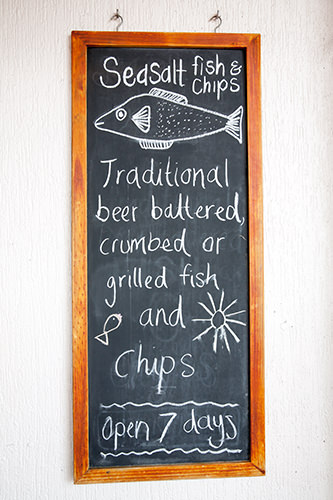 Seasalt fish &
chips
Traditional
beer battered,
crumbed or
grilled fish
and
chips
Open 7 days